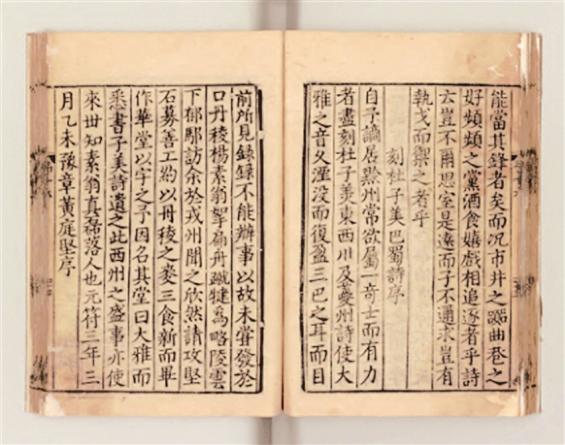 能當其鋒者矣而況市井之謳曲巷之
好頻頻之黨酒食嬉戲相追逐者乎詩
云豈不爾思室是遠而子不求豈有
執戈而禦之者乎
刻杜子美巴蜀詩序
自予謫居黔州常欲屬一奇士而有力
者盡刻杜子美東西川及夔州詩使大
雅之音久湮没而復盈三巴之耳而目
前所見録録不能辦事以故未嘗發於
口丹稜楊素翁拏扁舟蹴犍為略陵雲
下郁鄢訪余於戎州聞之欣然請攻堅
石募善工約以丹稜之麥三食新而畢
作華堂以宇之予因名其堂曰大雅而
悉書子美詩遺之此西州之盛事亦使
來世知素翁真磊落人也元符三年三
月乙未豫章黃庭堅序